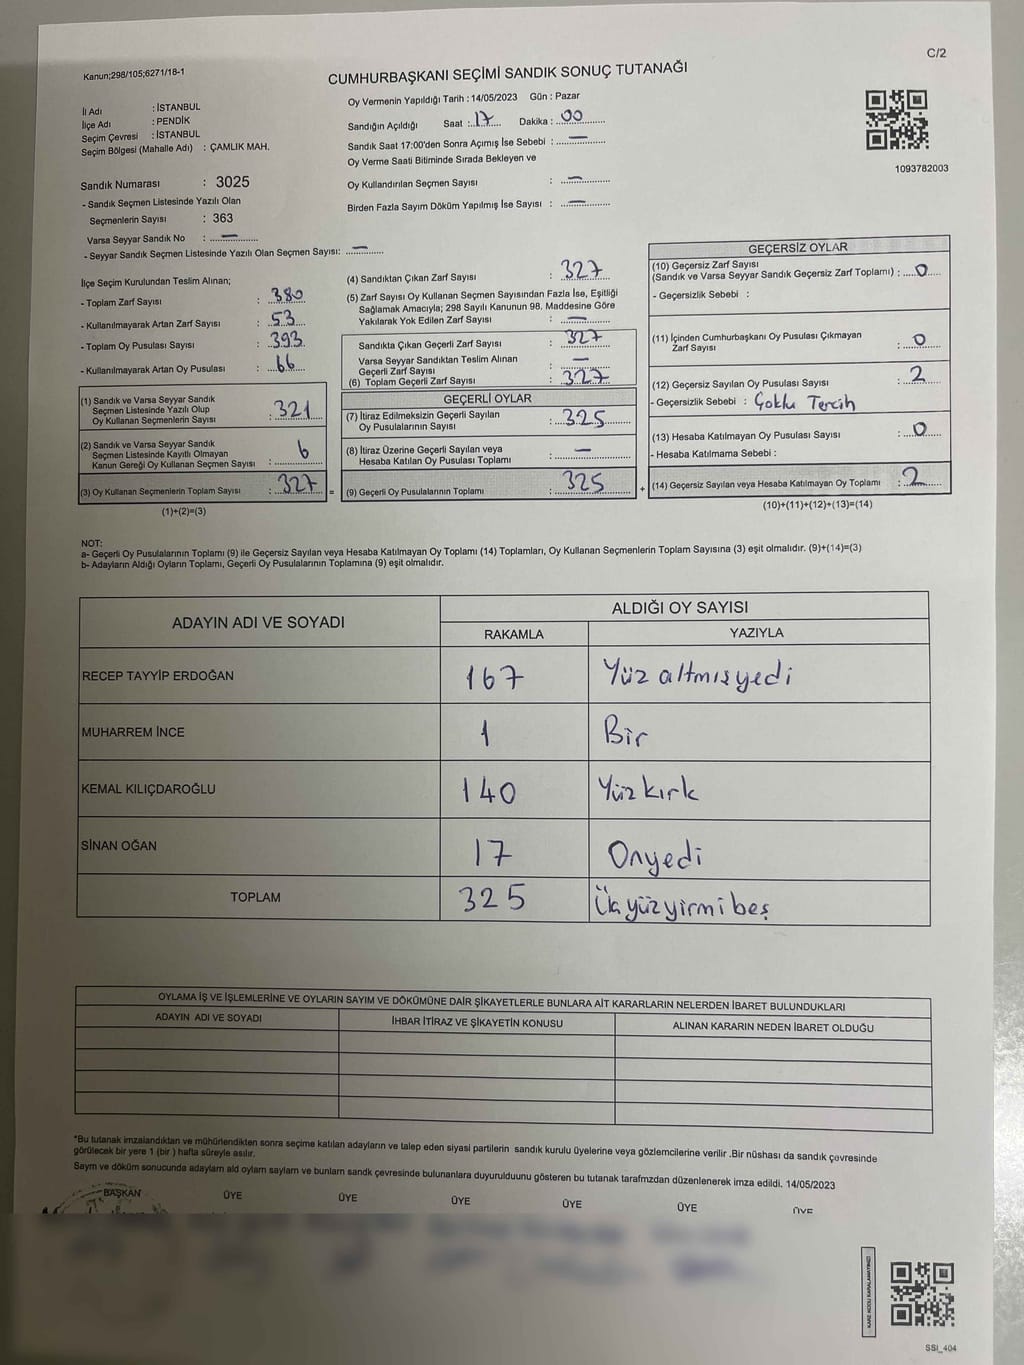 C/2
Kanun;298/105;6271/18-1
CUMHURBAŞKANI SEÇİMİ SANDIK SONUÇ TUTANAĞI
İl Adı : İSTANBUL
İlçe Adı : PENDİK
Seçim Çevresi : İSTANBUL
Seçim Bölgesi (Mahalle Adı) : ÇAMLIK MAH.
Oy Vermenin Yapıldığı Tarih : 14/05/2023 Gün : Pazar
Sandığın Açıldığı Saat : 17 Dakika : 00
Sandık Saat 17:00'den Sonra Açımış İse Sebebi : —
Oy Verme Saati Bitiminde Sırada Bekleyen ve
Oy Kullandırılan Seçmen Sayısı : —
Birden Fazla Sayım Döküm Yapılmış İse Sayısı : —
1093782003
Sandık Numarası : 3025
- Sandık Seçmen Listesinde Yazılı Olan
Seçmenlerin Sayısı : 363
Varsa Seyyar Sandık No : —
- Seyyar Sandık Seçmen Listesinde Yazılı Olan Seçmen Sayısı: —
İlçe Seçim Kurulundan Teslim Alınan;
- Toplam Zarf Sayısı : 380
- Kullanılmayarak Artan Zarf Sayısı : 53
- Toplam Oy Pusulası Sayısı : 393
- Kullanılmayarak Artan Oy Pusulası : 66
(1) Sandık ve Varsa Seyyar Sandık
Seçmen Listesinde Yazılı Olup
Oy Kullanan Seçmenlerin Sayısı : 321
(2) Sandık ve Varsa Seyyar Sandık
Seçmen Listesinde Kayıtlı Olmayan
Kanun Gereği Oy Kullanan Seçmen Sayısı : 6
(3) Oy Kullanan Seçmenlerin Toplam Sayısı : 327 =
(1)+(2)=(3)
(4) Sandıktan Çıkan Zarf Sayısı : 327
(5) Zarf Sayısı Oy Kullanan Seçmen Sayısından Fazla İse, Eşitliği
Sağlamak Amacıyla; 298 Sayılı Kanunun 98. Maddesine Göre
Yakılarak Yok Edilen Zarf Sayısı : —
Sandıkta Çıkan Geçerli Zarf Sayısı : 327
Varsa Seyyar Sandıktan Teslim Alınan
Geçerli Zarf Sayısı : —
(6) Toplam Geçerli Zarf Sayısı : 327
GEÇERLİ OYLAR
(7) İtiraz Edilmeksizin Geçerli Sayılan
Oy Pusulalarının Sayısı : 325
(8) İtiraz Üzerine Geçerli Sayılan veya
Hesaba Katılan Oy Pusulası Toplamı : —
(9) Geçerli Oy Pusulalarının Toplamı : 325 +
GEÇERSİZ OYLAR
(10) Geçersiz Zarf Sayısı
(Sandık ve Varsa Seyyar Sandık Geçersiz Zarf Toplamı) : 0
- Geçersizlik Sebebi :
(11) İçinden Cumhurbaşkanı Oy Pusulası Çıkmayan
Zarf Sayısı : 0
(12) Geçersiz Sayılan Oy Pusulası Sayısı : 2
- Geçersizlik Sebebi : Çoklu Tercih
(13) Hesaba Katılmayan Oy Pusulası Sayısı : 0
- Hesaba Katılmama Sebebi :
(14) Geçersiz Sayılan veya Hesaba Katılmayan Oy Toplamı : 2
(10)+(11)+(12)+(13)=(14)
NOT:
a- Geçerli Oy Pusulalarının Toplamı (9) ile Geçersiz Sayılan veya Hesaba Katılmayan Oy Toplamı (14) Toplamları, Oy Kullanan Seçmenlerin Toplam Sayısına (3) eşit olmalıdır. (9)+(14)=(3)
b- Adayların Aldığı Oyların Toplamı, Geçerli Oy Pusulalarının Toplamına (9) eşit olmalıdır.
ADAYIN ADI VE SOYADI
ALDIĞI OY SAYISI
RAKAMLA YAZIYLA
RECEP TAYYİP ERDOĞAN 167 Yüz altmışyedi
MUHARREM İNCE 1 Bir
KEMAL KILIÇDAROĞLU 140 Yüzkırk
SİNAN OĞAN 17 Onyedi
TOPLAM 325 Üçyüzyirmibeş
OYLAMA İŞ VE İŞLEMLERİNE VE OYLARIN SAYIM VE DÖKÜMÜNE DAİR ŞİKAYETLERLE BUNLARA AİT KARARLARIN NELERDEN İBARET BULUNDUKLARI
ADAYIN ADI VE SOYADI İHBAR İTİRAZ VE ŞİKAYETİN KONUSU ALINAN KARARIN NEDEN İBARET OLDUĞU
*Bu tutanak imzalandıktan ve mühürlendikten sonra seçime katılan adayların ve talep eden siyasi partilerin sandık kurulu üyelerine veya gözlemcilerine verilir .Bir nüshası da sandık çevresinde
görülecek bir yere 1 (bir ) hafta süreyle asılır.
Sayım ve döküm sonucunda adayların ald oyların sayların ve bunların sandk çevresinde bulunanlara duyurulduunu gösteren bu tutanak tarafmzdan düzenlenerek imza edildi. 14/05/2023
BAŞKAN ÜYE ÜYE ÜYE ÜYE ÜYE ÜYE
KARE KODU KARALAMAYINIZ!
SSI_404